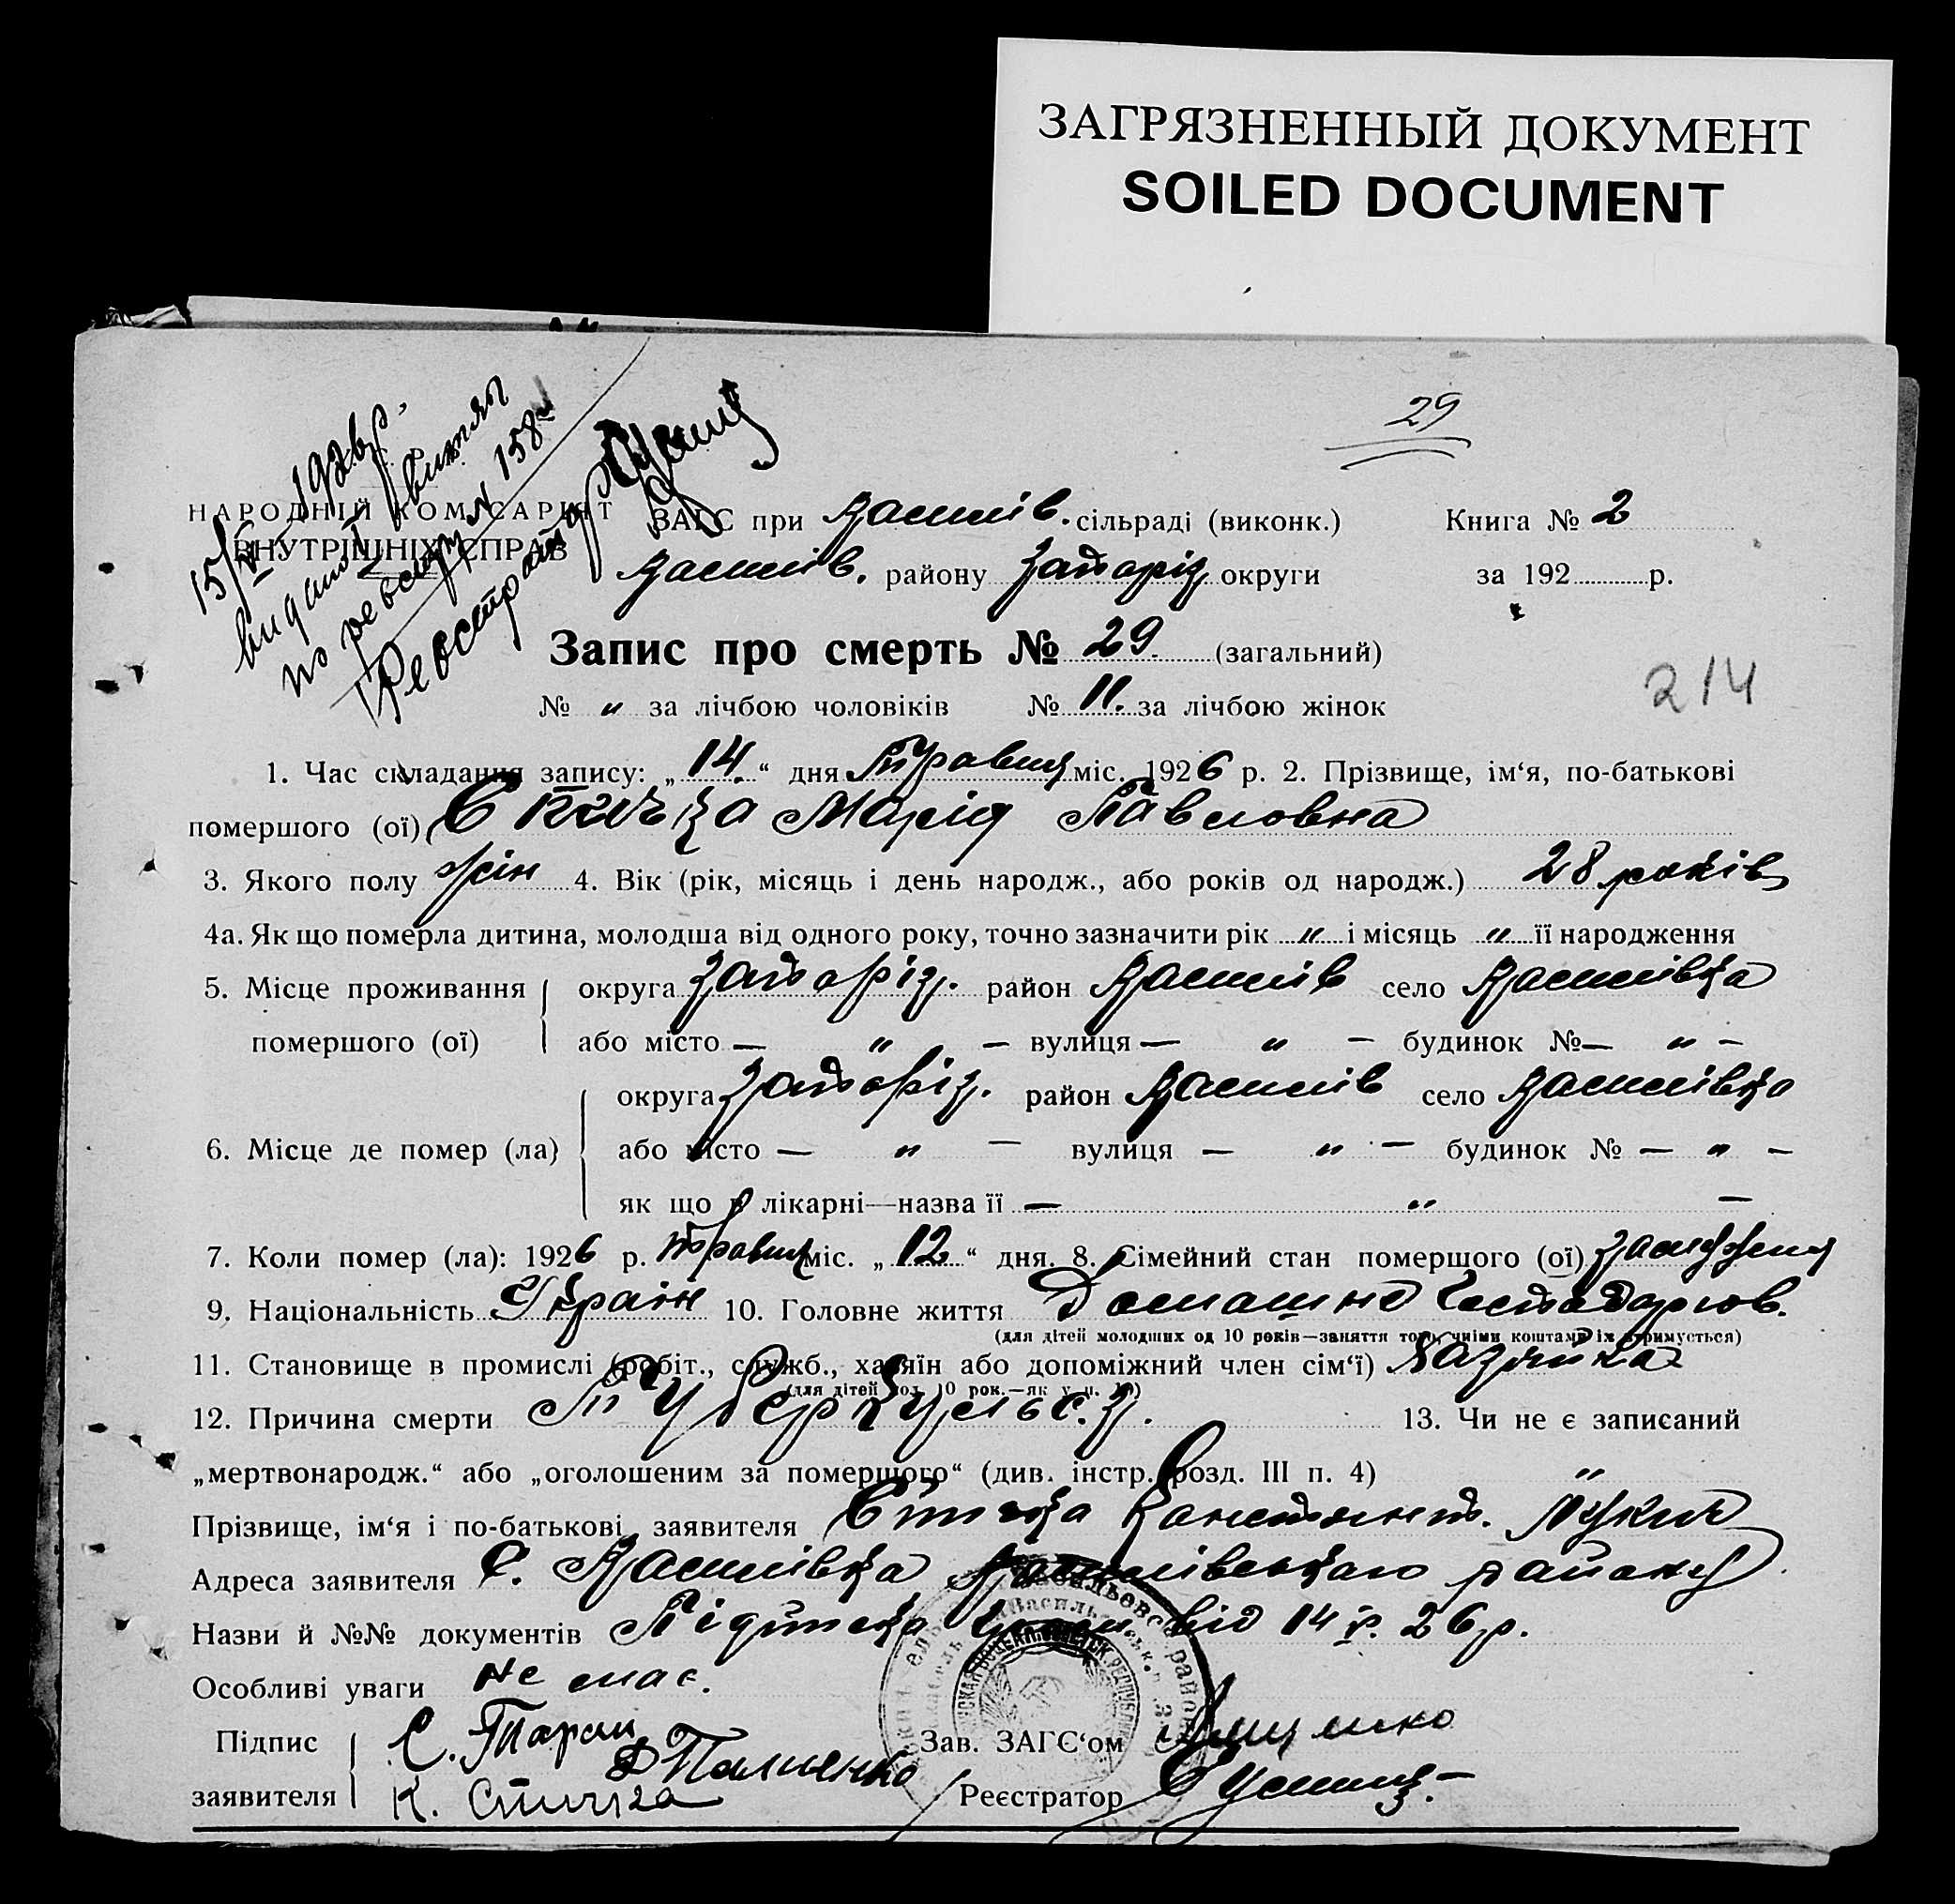 ЗАГРЯЗНЕННЫЙ ДОКУМЕНТ
SOILED DOCUMENT
29
15/V 1926р.
видано витяг
по реєстру № 158
Реєстратор
НАРОДНІЙ КОМІСАРІЯТ
ВНУТРІШНІХ СПРАВ
ЗАГС при Василів. сільраді (виконк.) Книга № 2
Василів. району Запоріз. округи за 192 р.
Запис про смерть № 29 (загальний)
№ „ за лічбою чоловіків № 11. за лічбою жінок
214
1. Час складання запису: „14.“ дня Травня міс. 1926 р. 2. Прізвище, ім‘я, по-батькові
помершого (ої) Стичка Марія Павловна
3. Якого полу жін 4. Вік (рік, місяць і день народж., або років од народж.) 28 років
4а. Як що померла дитина, молодша від одного року, точно зазначити рік „ і місяць „ її народження
5. Місце проживання округа Запоріз. район Василів село Василівка
помершого (ої) або місто — „ — вулиця — „ — будинок № — „ —
округа Запоріз. район Василів село Василівка
6. Місце де помер (ла) або місто — „ — вулиця — „ — будинок № — „ —
як що в лікарні—назва її — „ —
7. Коли помер (ла): 1926 р. травня міс. „12“ дня. 8. Сімейний стан помершого (ої) замужня
9. Національність Україн 10. Головне життя Домашнє господарюв.
(для дітей молодших од 10 років—заняття того, чиїми коштами їх утримується)
11. Становище в промислі (робіт., служб., хазяїн або допоміжний член сім‘ї) Хазяйка
(для дітей мол. 10 рок.—як у п. 10)
12. Причина смерти Туберкульоз. 13. Чи не є записаний
„мертвонародж.“ або „оголошеним за помершого“ (див. інстр. розд. III п. 4) „
Прізвище, ім‘я і по-батькові заявителя Стичка Констянт. Лукич
Адреса заявителя С. Василівка Василівського району
Назви й №№ документів Підписка від 14 V. 26р.
Особливі уваги Не має.
Підпис С. Таран
заявителя Д Палиенко
К. Стичка
Зав. ЗАГС‘ом
Реєстратор